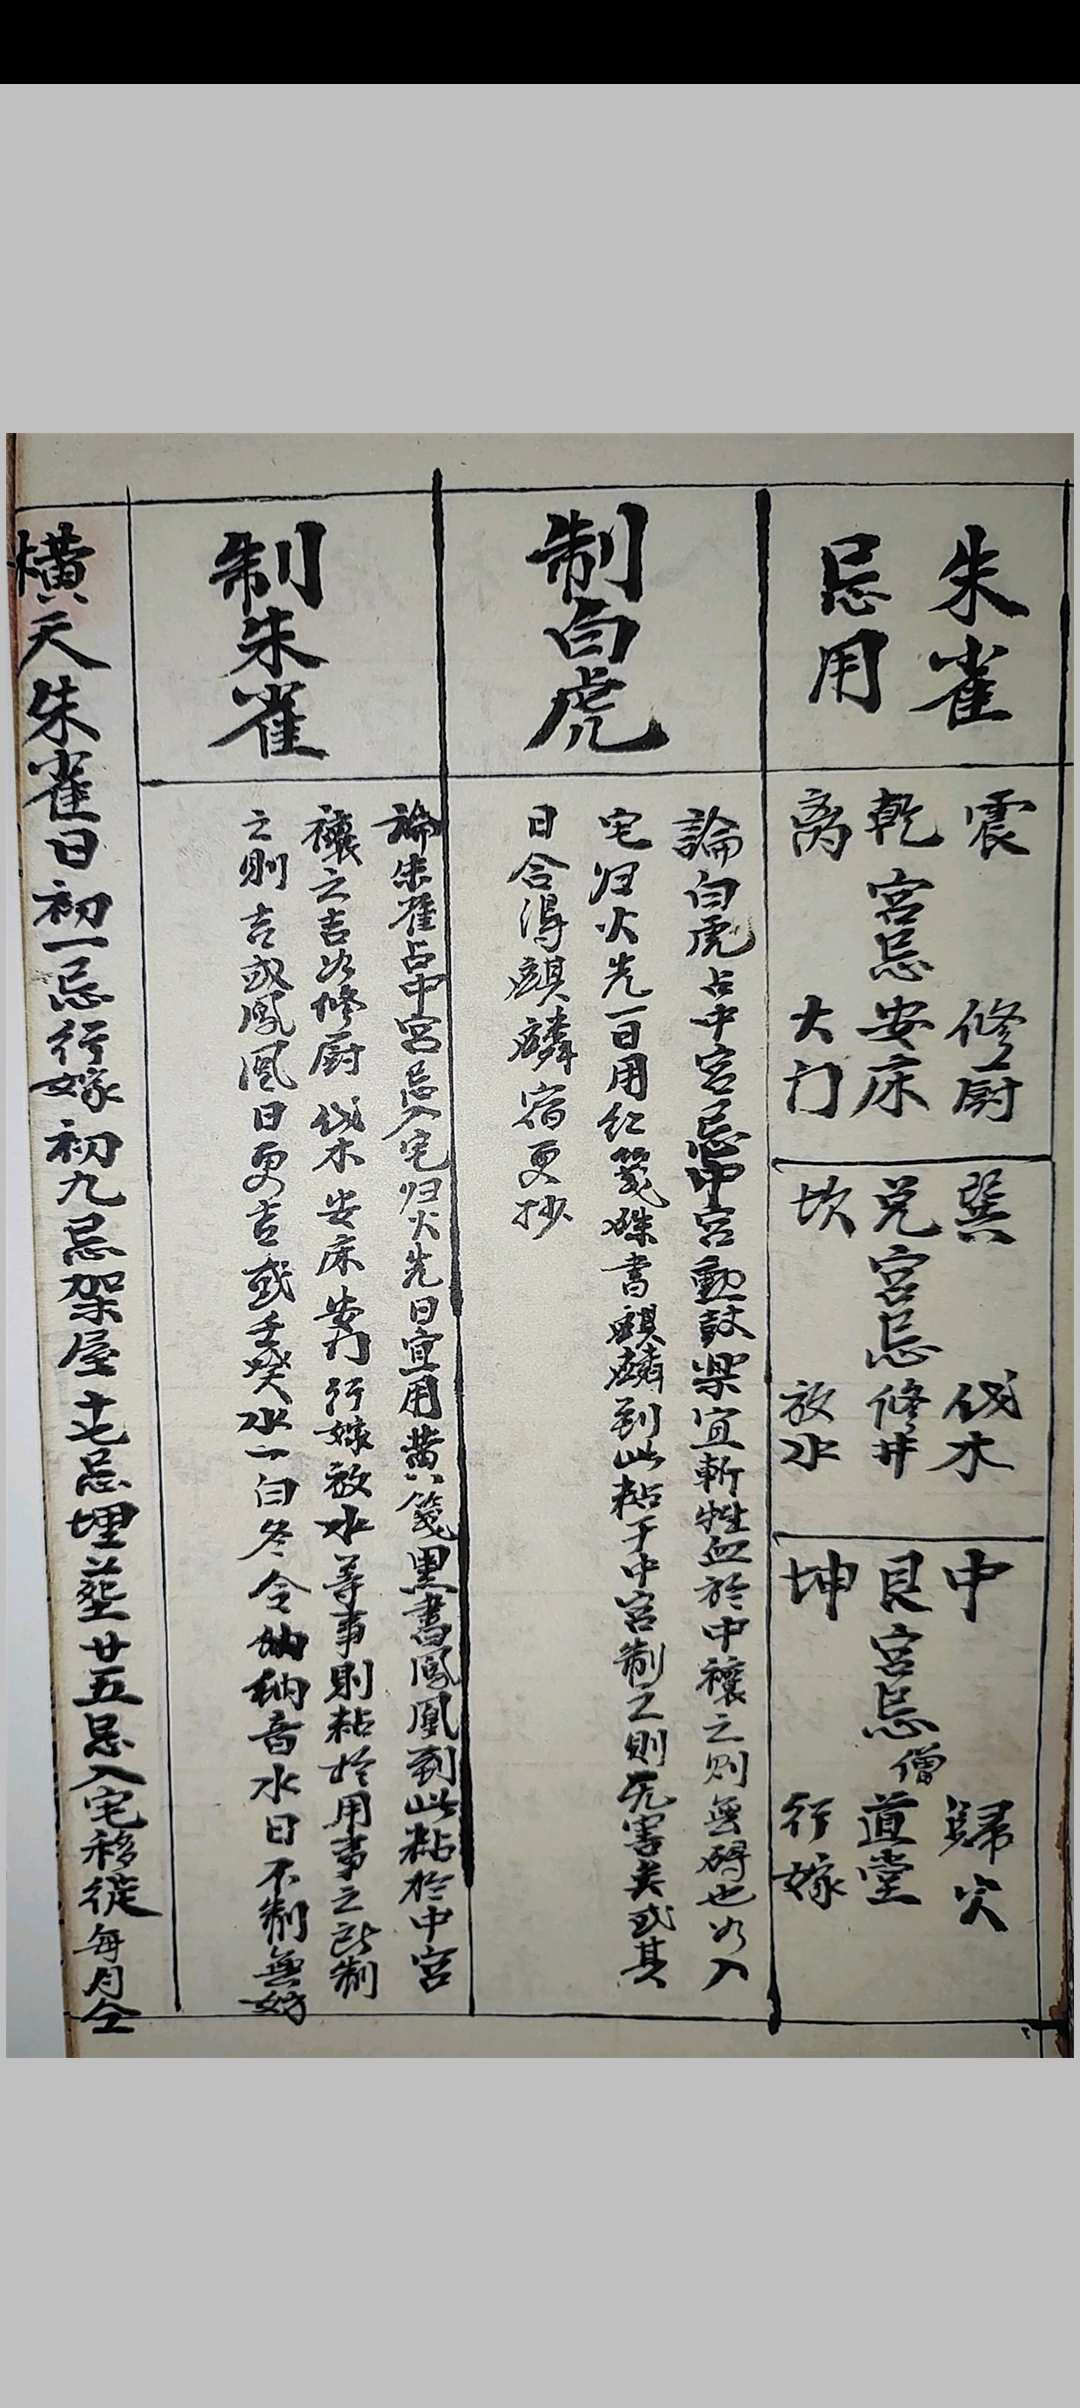 朱雀
忌用
震 修厨
乾宮忌安床
离 大门
巽 伐木
兑宮忌修井
坎 放水
中 歸火
艮宮忌僧道堂
坤 行嫁
制白虎
論白虎占中宮忌中宮動鼓樂宜斬牲血於中禳之则無碍也如入
宅归火先一日用红箋硃書麒麟到此粘于中宮制之則无害矣或其
日合得麒麟宿更抄
制朱雀
論朱雀占中宮忌入宅归火先日宜用黄箋黑書鳳凰到此粘於中宮
禳之吉如修厨伐木安床安门行嫁放水等事則粘於用事之所制
之則吉或鳳凰日更吉或壬癸水一白冬令納音水日不制無妨
横天朱雀日初一忌行嫁初九忌架屋十七忌埋葬廿五忌入宅移徙每月仝